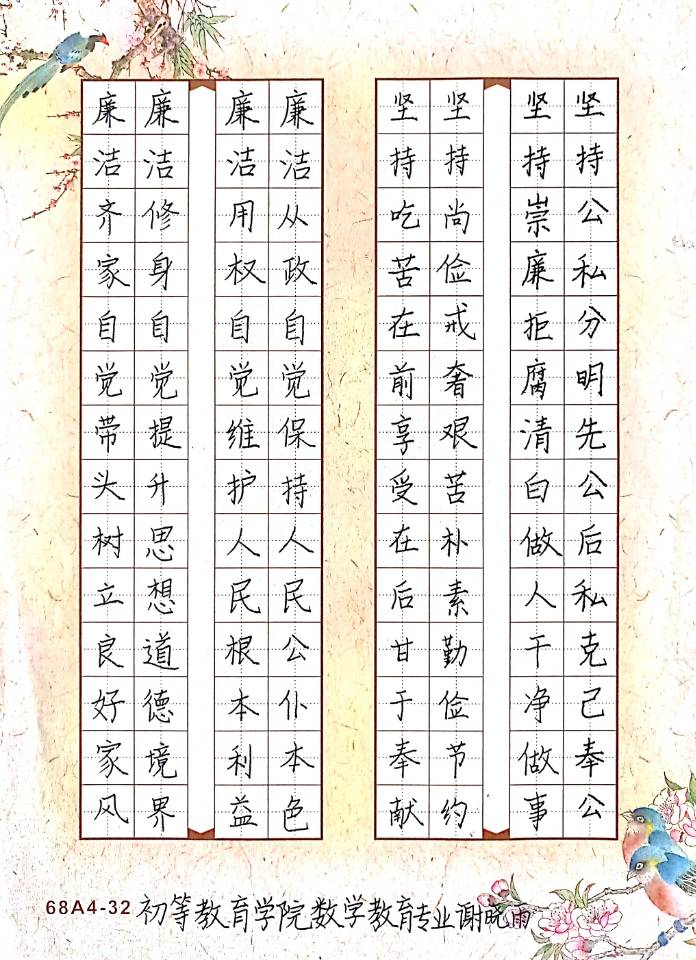 坚持公私分明先公后私克己奉公
坚持崇廉拒腐清白做人干净做事
坚持尚俭戒奢艰苦朴素勤俭节约
坚持吃苦在前享受在后甘于奉献
廉洁从政自觉保持人民公仆本色
廉洁用权自觉维护人民根本利益
廉洁修身自觉提升思想道德境界
廉洁齐家自觉带头树立良好家风
68A4-32 初等教育学院数学教育专业谢晓雨